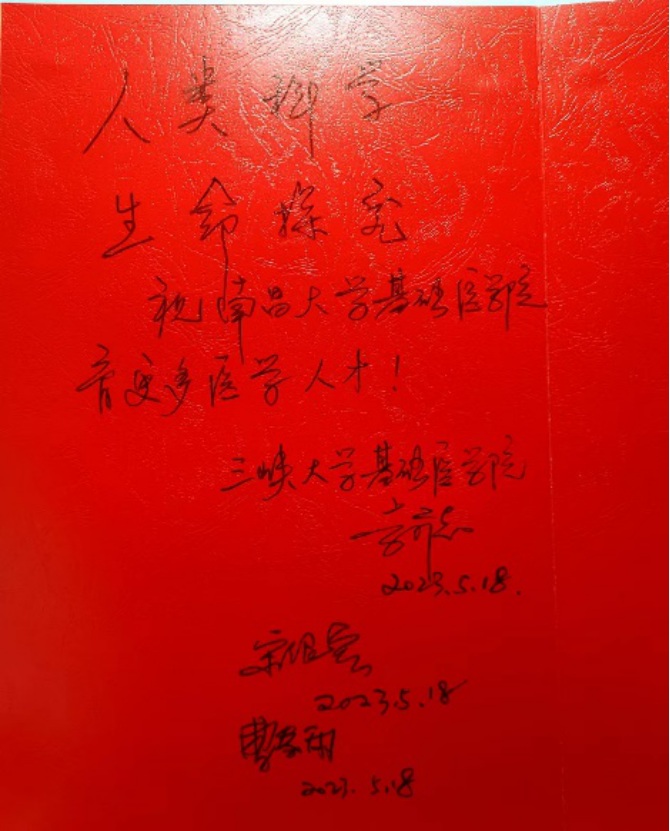 人类科学
生命探究
祝南昌大学基础医学院
育更多医学人才！
三峡大学基础医学院
2023.5.18.
2023.5.18
2023.5.18